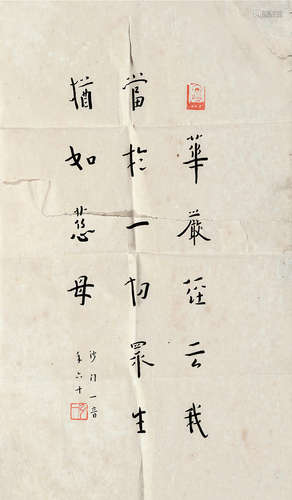 華嚴經云我
當於一切眾生
猶如慈母
沙門一音
年六十